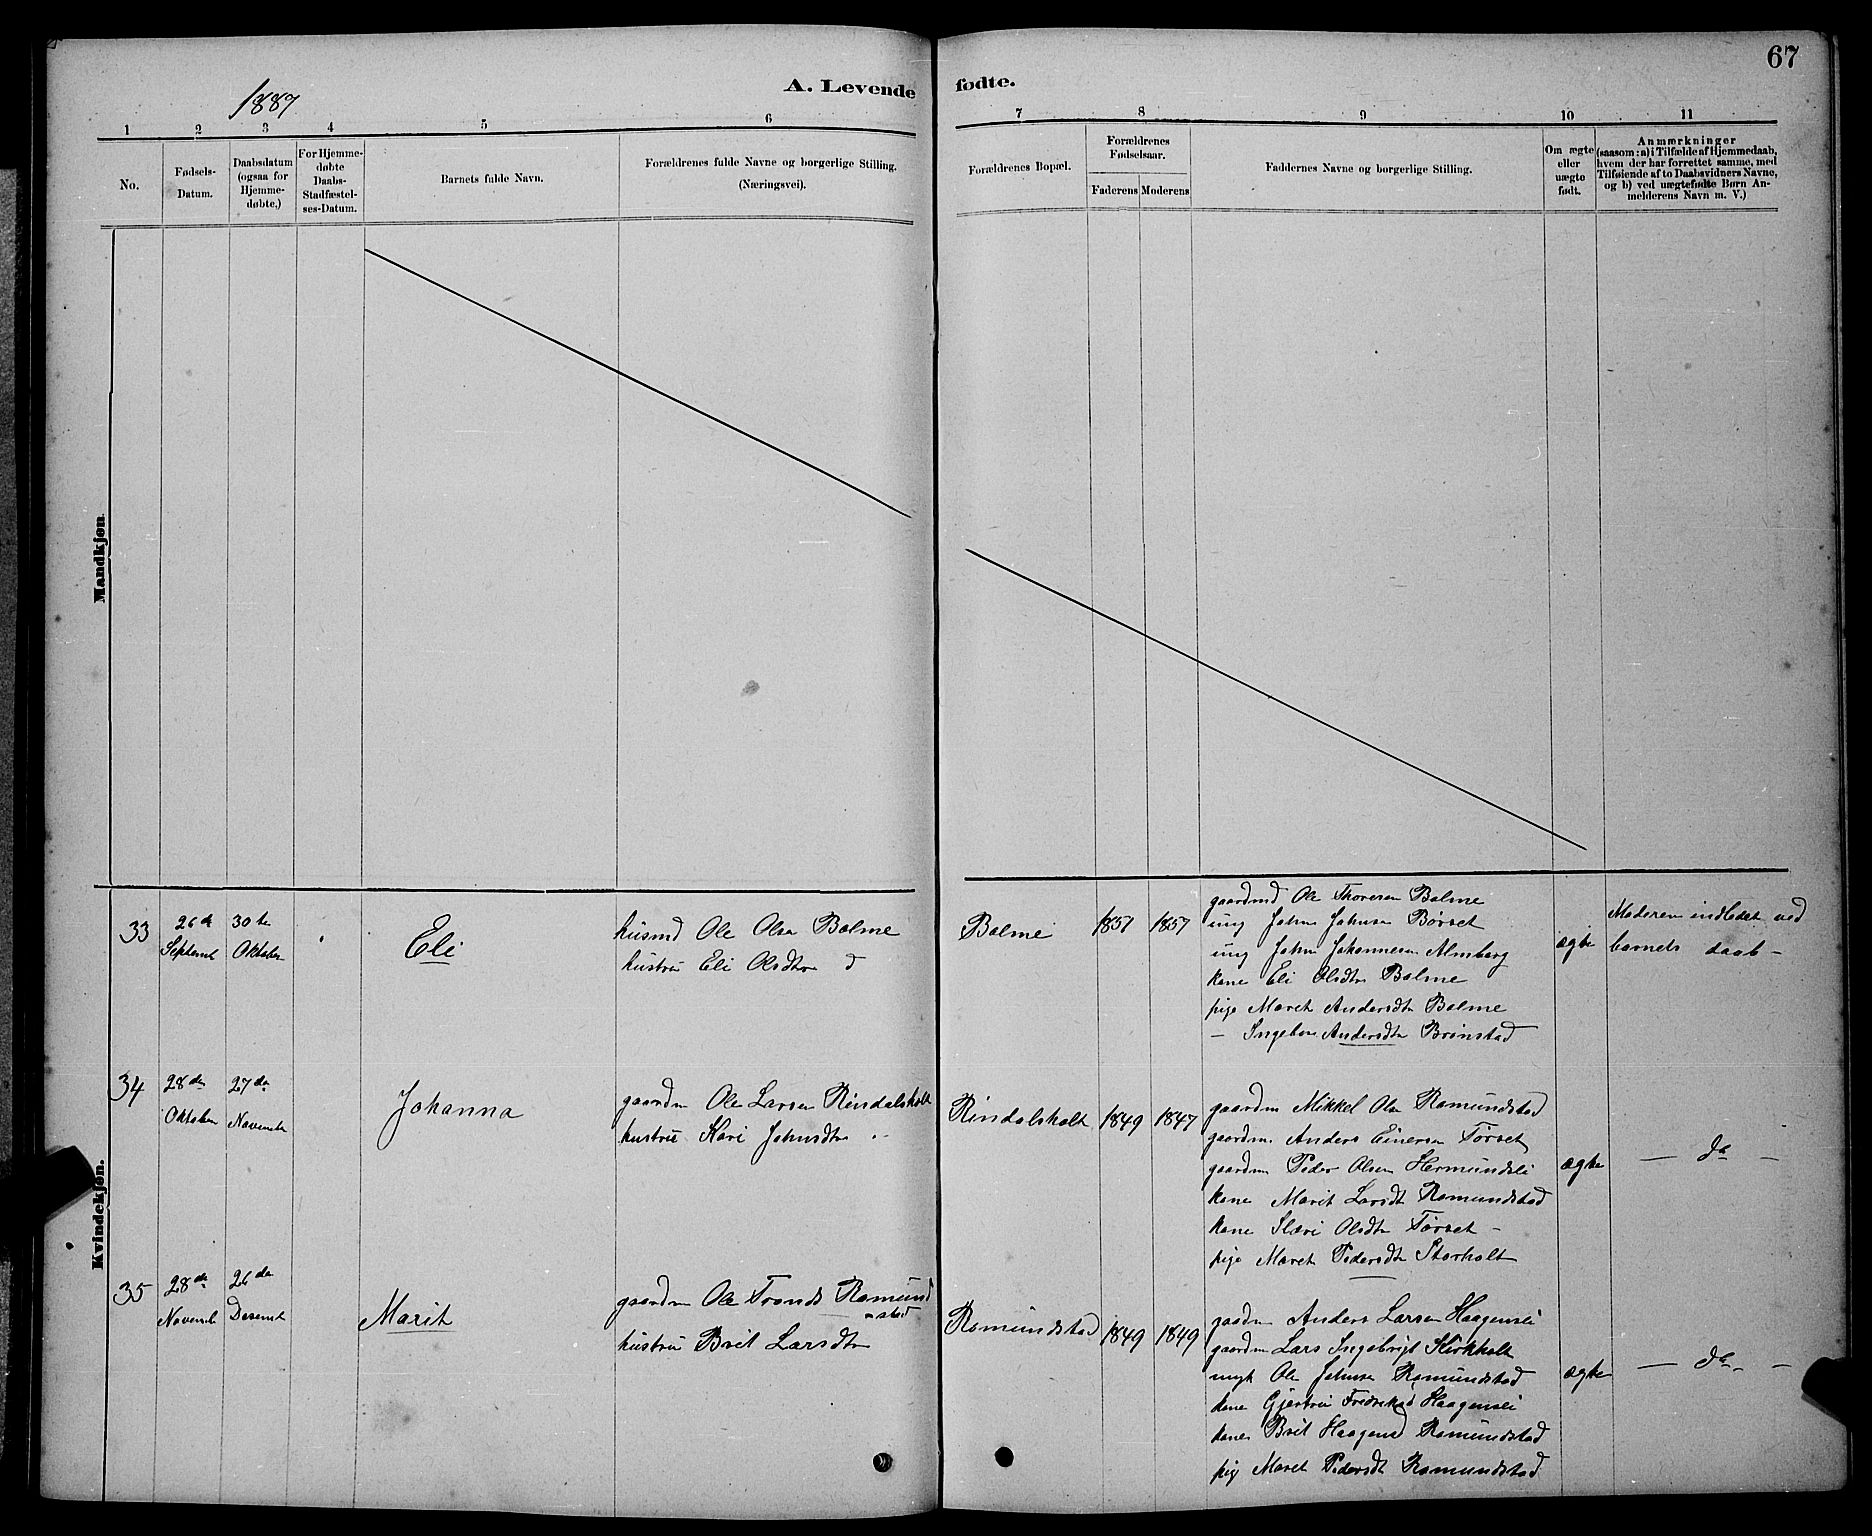 67
1887
A. Levende fødte.
1 2 3 4 5 6 7 8 9 10 11
No.
Fødsels-
Datum.
Daabsdatum
(ogsaa for
Hjemme-
døbte.)
For Hjemme-
døbte
Daabs-
Stadfæstel-
ses-Datum.
Barnets fulde Navn.
Forældrenes fulde Navne og borgerlige Stilling.
(Næringsvei).
Forældrenes Bopæl.
Forældrenes
Fødselsaar.
Faderens Moderens
Faddernes Navne og borgerlige Stilling.
Om ægte
eller
uægte
født.
Anmærkninger
(saasom: a) i Tilfælde af Hjemmedaab,
hvem der har forrettet samme, med
Tilføiende af to Daabsvidners Navne,
og b) ved uægtefødte Børn An-
melderens Navn m. V.)
Mandkjøn.
Kvindekjøn.
33
26de
Septemb
30te
Oktober
Eli
husmd Ole Olsen Bolme
hustru Eli Olsdtr d
Bolme
1851
1857
gaardmd Ole Thoresen Bolme
ung John Johnsen Børset
ung John Johannesen Almberg
kone Eli Olsdtr Bolme
pige Maret Andersdtr Bolme
– Ingebor Andersdtr Brønstad
ægte
Moderen indledet ved
barnets daab –
34
28de
Oktober
27de
Novemb
Johanna
gaardm Ole Larsen Rindalsholt
hustru Kari Johnsdtr
Rindalsholt
1849
1847
gaardm Mikkel Olsen Romundstad
gaardm. Anders Einersen Tørset
gaardm Peder Olsen Hermundsli
kone Marit Larsdt Romundstad
kone Kari Olsdtr Tørset –
pige Maret Pedersdtr Storholt
ægte
– do –
35
28de
Novemb
26de
Desemb
Marit
gaardm Ole Tronds Romund
stad
hustru Brit Larsdtr
Romundstad
1849
1849
gaardm Anders Larsen Haagensli
gaardm Lars Ingebrigt Kirkholt
ungk Ole Johnsen Romundstad
kone Gjertru Fredriksd Haagensli
kone Brit Haagensd Romundstad
pig Maret Pedersdt Romundstad
ægte
– do –